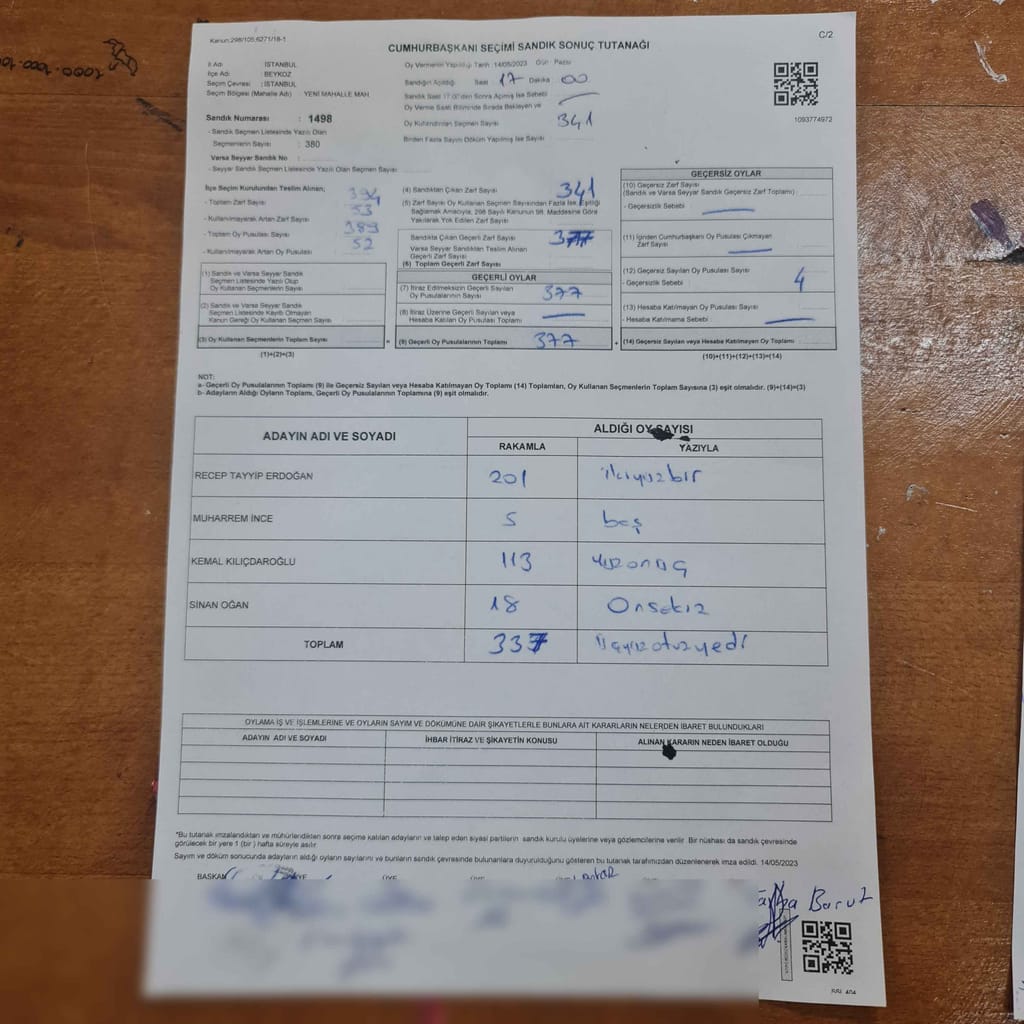 Kanun:298/105,6271/18-1
C/2
CUMHURBAŞKANI SEÇİMİ SANDIK SONUÇ TUTANAĞI
İl Adı : İSTANBUL
İlçe Adı : BEYKOZ
Seçim Çevresi : İSTANBUL
Seçim Bölgesi (Mahalle Adı) YENİ MAHALLE MAH
Sandık Numarası : 1498
- Sandık Seçmen Listesinde Yazılı Olan
Seçmenlerin Sayısı : 380
Varsa Seyyar Sandık No :
- Seyyar Sandık Seçmen Listesinde Yazılı Olan Seçmen Sayısı
Oy Vermenin Yapıldığı Tarih :14/05/2023 Gün Pazar
Sandığın Açıldığı Saat 17 Dakika 00
Sandık Saat 17:00'den Sonra Açılmış İse Sebebi
Oy Verme Saati Bitiminde Sırada Bekleyen ve
Oy Kullandırılan Seçmen Sayısı 341
Birden Fazla Sayım Döküm Yapılmış İse Sayısı
1093774972
İlçe Seçim Kurulundan Teslim Alınan;
- Toplam Zarf Sayısı 394
- Kullanılmayarak Artan Zarf Sayısı 53
- Toplam Oy Pusulası Sayısı 389
- Kullanılmayarak Artan Oy Pusulası 52
(1) Sandık ve Varsa Seyyar Sandık
Seçmen Listesinde Yazılı Olup
Oy Kullanan Seçmenlerin Sayısı
(2) Sandık ve Varsa Seyyar Sandık
Seçmen Listesinde Kayıtlı Olmayan
Kanun Gereği Oy Kullanan Seçmen Sayısı
(3) Oy Kullanan Seçmenlerin Toplam Sayısı
(1)+(2)=(3)
(4) Sandıktan Çıkan Zarf Sayısı 341
(5) Zarf Sayısı Oy Kullanan Seçmen Sayısından Fazla İse, Eşitliği
Sağlamak Amacıyla, 298 Sayılı Kanunun 98. Maddesine Göre
Yakılarak Yok Edilen Zarf Sayısı
Sandıkta Çıkan Geçerli Zarf Sayısı
Varsa Seyyar Sandıktan Teslim Alınan
Geçerli Zarf Sayısı
(6) Toplam Geçerli Zarf Sayısı
GEÇERLİ OYLAR
(7) İtiraz Edilmeksizin Geçerli Sayılan
Oy Pusulalarının Sayısı 377
(8) İtiraz Üzerine Geçerli Sayılan veya
Hesaba Katılan Oy Pusulası Toplamı
(9) Geçerli Oy Pusulalarının Toplamı 377
GEÇERSİZ OYLAR
(10) Geçersiz Zarf Sayısı
(Sandık ve Varsa Seyyar Sandık Geçersiz Zarf Toplamı)
- Geçersizlik Sebebi
(11) İçinden Cumhurbaşkanı Oy Pusulası Çıkmayan
Zarf Sayısı
(12) Geçersiz Sayılan Oy Pusulası Sayısı 4
- Geçersizlik Sebebi
(13) Hesaba Katılmayan Oy Pusulası Sayısı
- Hesaba Katılmama Sebebi
(14) Geçersiz Sayılan veya Hesaba Katılmayan Oy Toplamı
(10)+(11)+(12)+(13)=(14)
NOT:
a- Geçerli Oy Pusulalarının Toplamı (9) ile Geçersiz Sayılan veya Hesaba Katılmayan Oy Toplamı (14) Toplamları, Oy Kullanan Seçmenlerin Toplam Sayısına (3) eşit olmalıdır. (9)+(14)=(3)
b- Adayların Aldığı Oyların Toplamı, Geçerli Oy Pusulalarının Toplamına (9) eşit olmalıdır.
ADAYIN ADI VE SOYADI
ALDIĞI OY SAYISI
RAKAMLA YAZIYLA
RECEP TAYYİP ERDOĞAN 201 ikiyüzbir
MUHARREM İNCE 5 beş
KEMAL KILIÇDAROĞLU 113 yüzonüç
SİNAN OĞAN 18 Onsekiz
TOPLAM 337 Üçyüzotuzyedi
OYLAMA İŞ VE İŞLEMLERİNE VE OYLARIN SAYIM VE DÖKÜMÜNE DAİR ŞİKAYETLERLE BUNLARA AİT KARARLARIN NELERDEN İBARET BULUNDUKLARI
ADAYIN ADI VE SOYADI İHBAR İTİRAZ VE ŞİKAYETİN KONUSU ALINAN KARARIN NEDEN İBARET OLDUĞU
*Bu tutanak imzalandıktan ve mühürlendikten sonra seçime katılan adayların ve talep eden siyasi partilerin sandık kurulu üyelerine veya gözlemcilerine verilir. Bir nüshası da sandık çevresinde
görülecek bir yere 1 (bir) hafta süreyle asılır.
Sayım ve döküm sonucunda adayların aldığı oyların sayılarını ve bunların sandık çevresinde bulunanlara duyurulduğunu gösteren bu tutanak tarafımızdan düzenlenerek imza edildi. 14/05/2023
BAŞKAN ÜYE ÜYE ÜYE
Barut